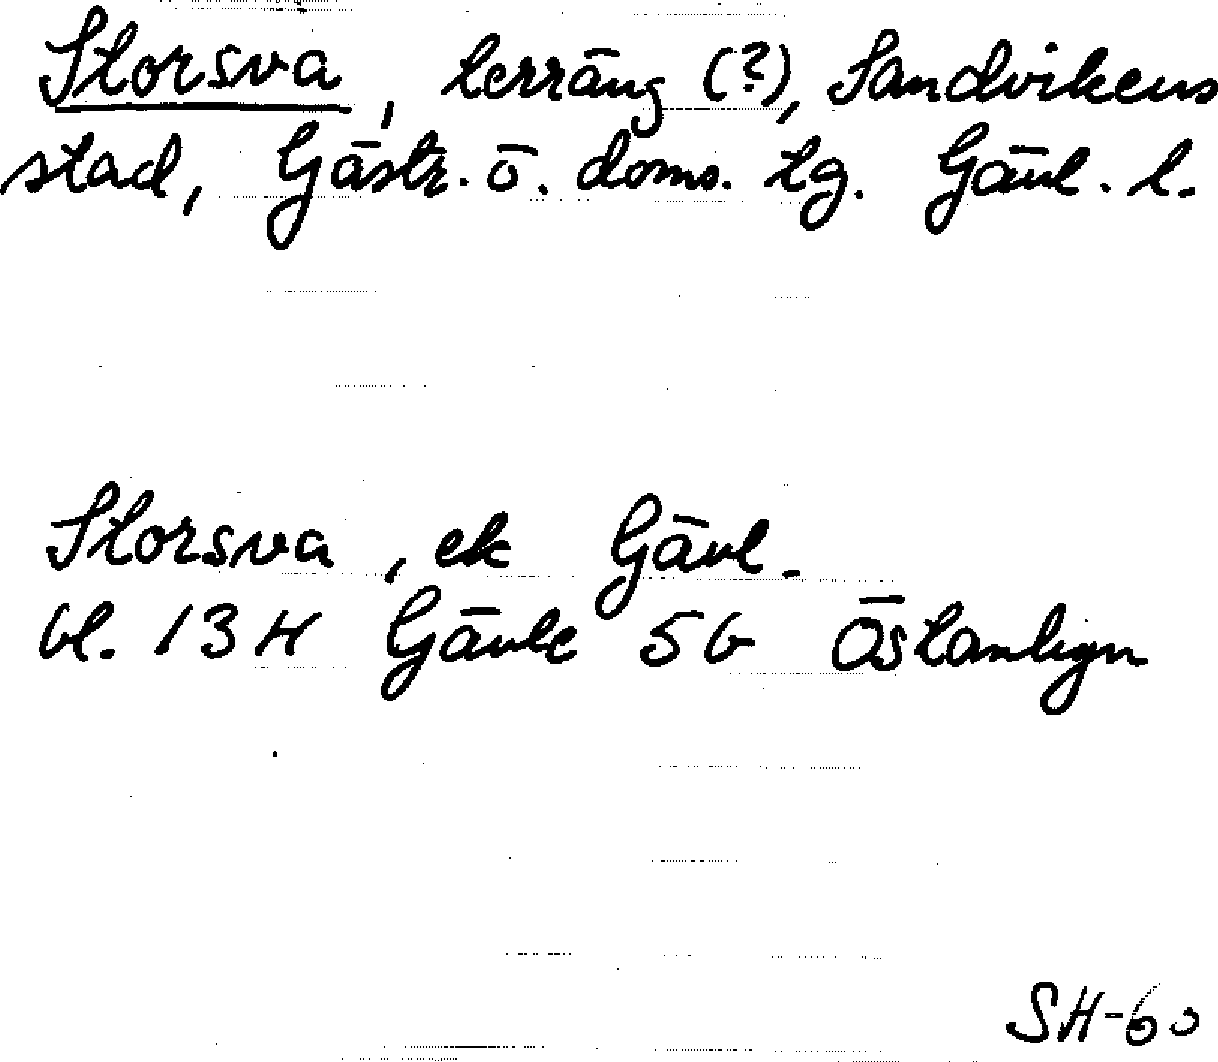 Storsva, terräng (?), Sandvikens
stad, Gästr. ö. doms. tg. Gävl. l.
Storsva, ek Gävl.
bl. 13 H Gävle 5 b Östanbyn
SH-60